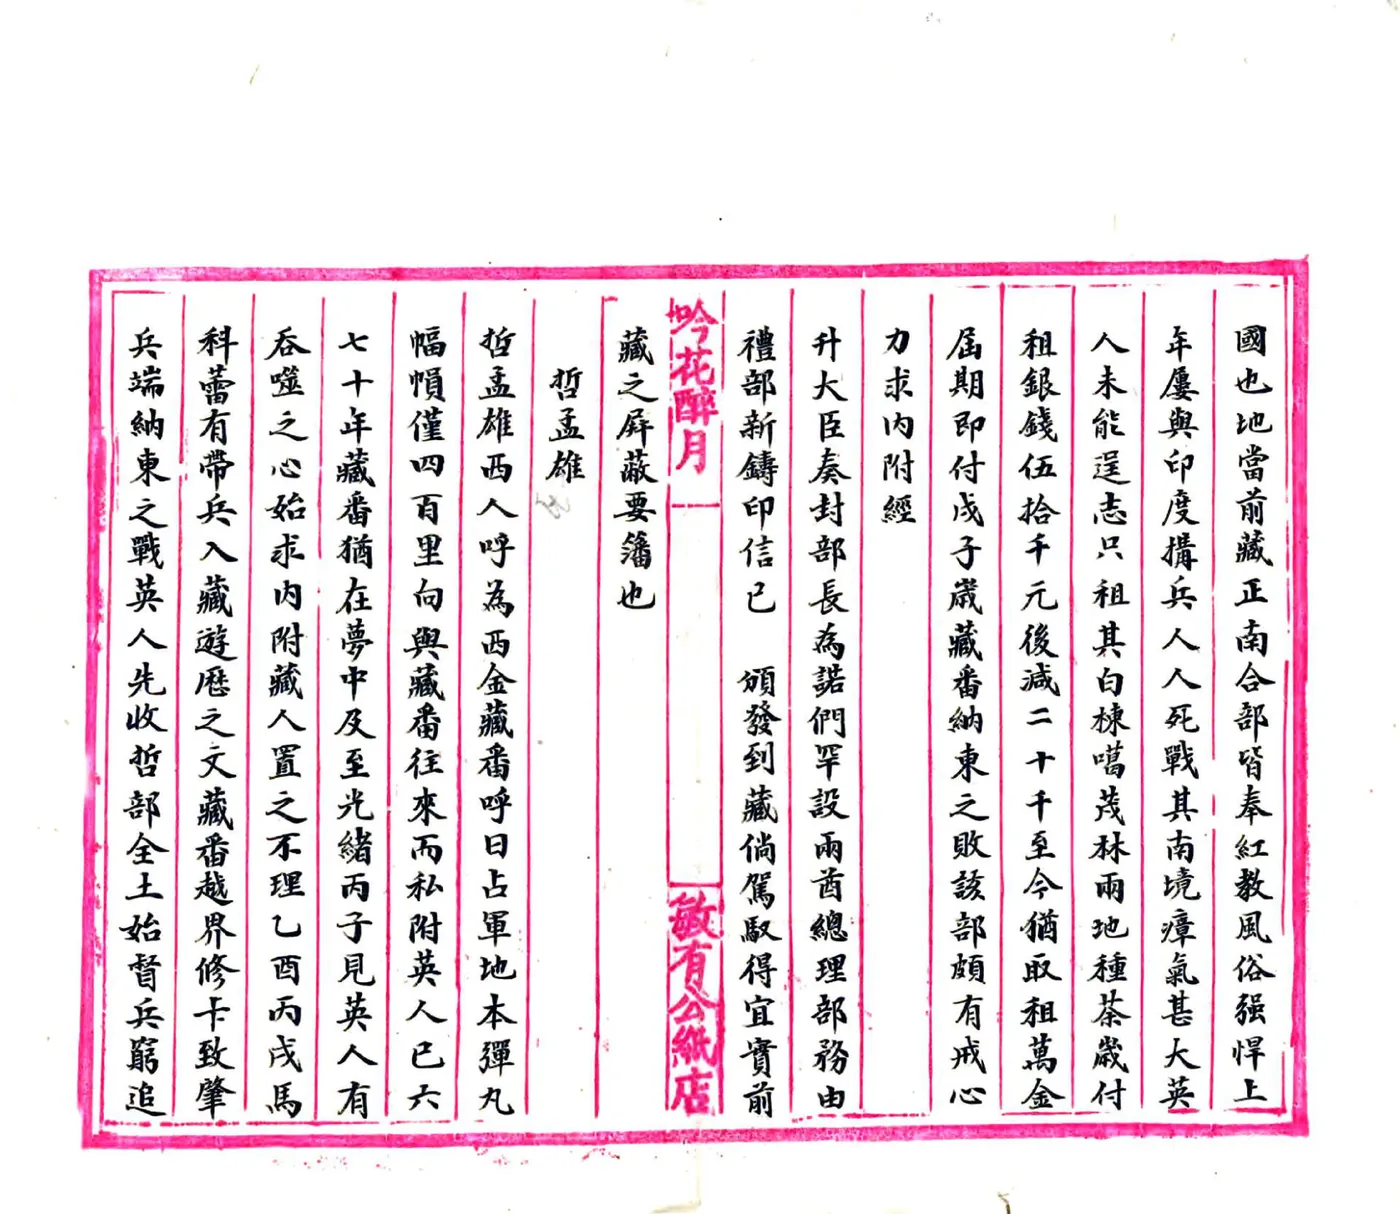 國也地當前藏正南合部皆奉紅教風俗强悍上
年屢與印度搆兵人人死戰其南境瘴氣甚大英
人未能逞志只租其白棟噶茂林兩地種茶歲付
租銀錢伍拾千元後減二十千至今猶取租萬金
屆期即付戌子歲藏番納東之敗該部頗有戒心
力求内附經
升大臣奏封部長為諾們罕設兩酋總理部務由
禮部新鑄印信已 頒發到藏倘駕馭得宜實前
吟花醉月
敏有公紙店
藏之屏蔽要籓也
哲孟雄
哲孟雄西人呼為西金藏番呼曰占軍地本彈丸
幅幁僅四百里向與藏番往來而私附英人已六
七十年藏番猶在夢中及至光緒丙子見英人有
吞噬之心始求内附藏人置之不理乙酉丙戌馬
科蕾有帶兵入藏遊歷之文藏番越界修卡致肇
兵端納東之戰英人先收哲部全土始督兵窮追